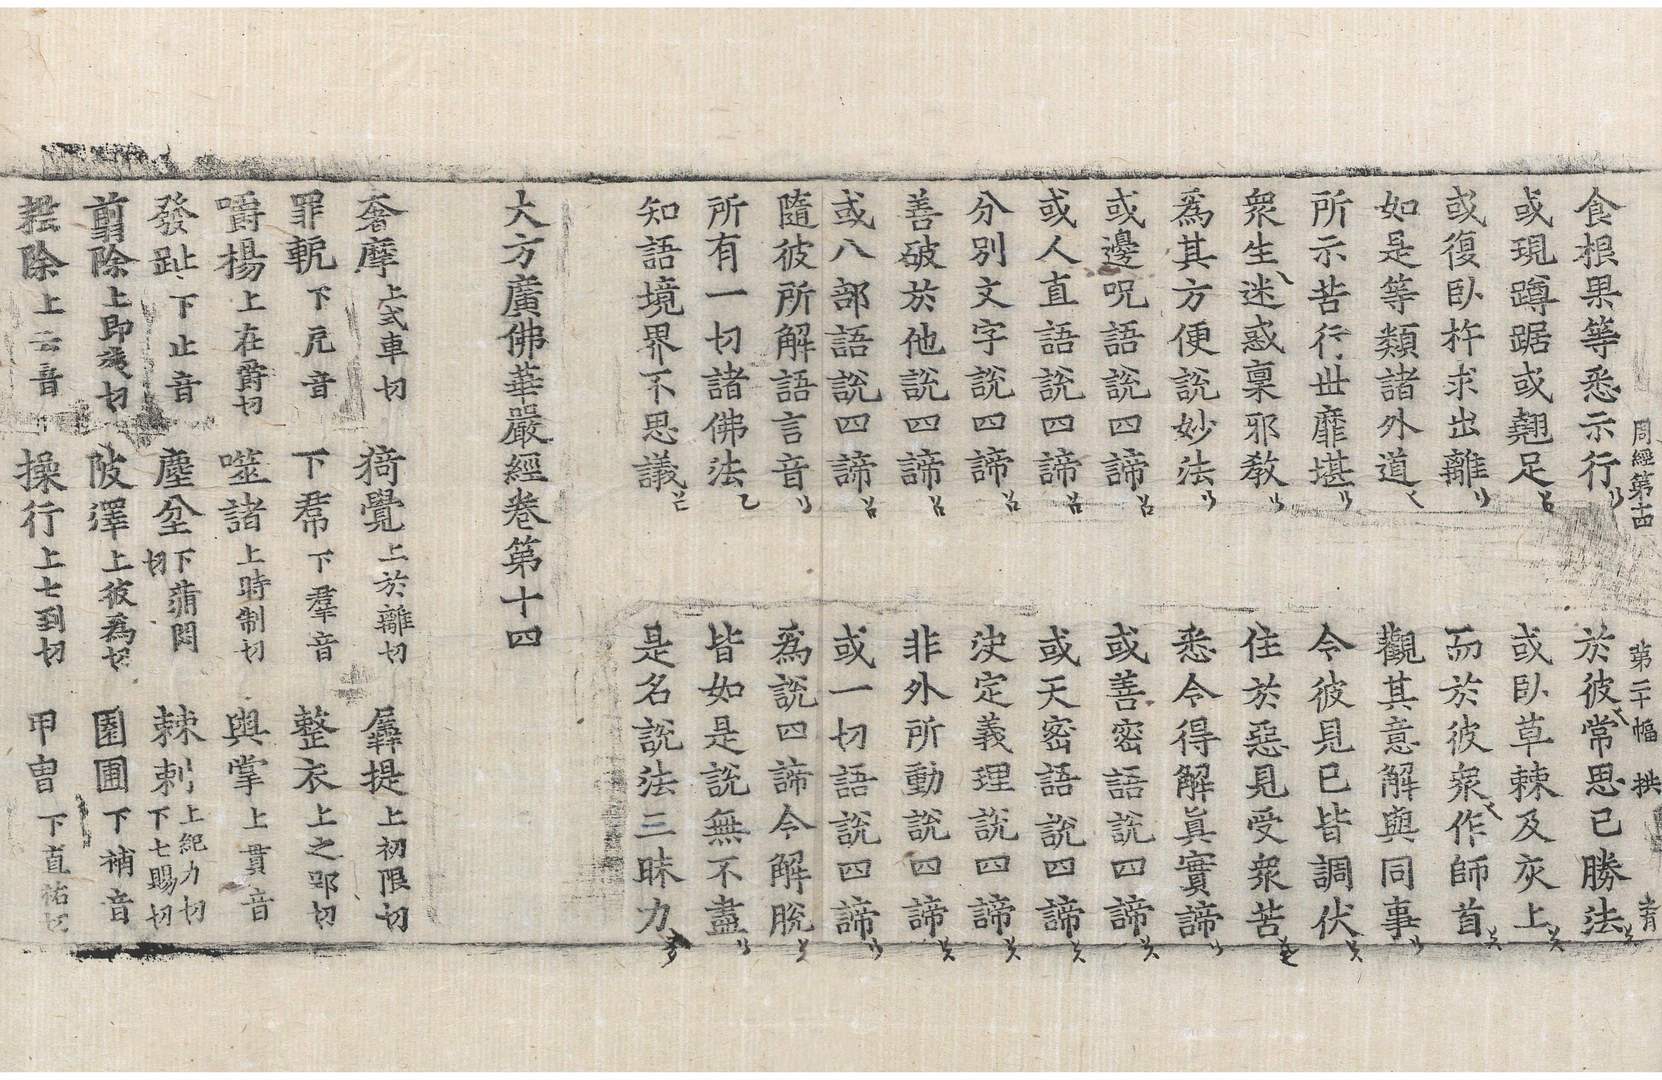 周經第十四 第二十幅 拱
食根果等悉示行 於彼常思己勝法
或現蹲踞或翹足 或臥草棘及灰上
或復臥杵求出離 而於彼衆作師首
如是等類諸外道 觀其意解與同事
所示苦行世靡堪 令彼見已皆調伏
衆生迷惑稟邪教 住於惡見受衆苦
爲其方便說妙法 悉令得解眞實諦
或邊呪語說四諦 或善密語說四諦
或人直語說四諦 或天密語說四諦
分別文字說四諦 決定義理說四諦
善破於他說四諦 非外所動說四諦
或八部語說四諦 或一切語說四諦
隨彼所解語言音 爲說四諦令解脫
所有一切諸佛法 皆如是說無不盡
知語境界不思議 是名說法三昧力
大方廣佛華嚴經卷第十四
奢摩 上式車切 猗覺 上於離切 羼提 上初限切
罪軛 下厄音 下帬 下羣音 整衣 上之郢切
嚼楊 上在爵切 噬諸 上時制切 與掌 上貫音
發趾 下止音 塵坌 下蒲悶切 棘刺 上紀力切 下七賜切
翦除 上即淺切 陂澤 上彼爲切 園圃 下補音
耘除 上云音 操行 上七到切 甲冑 下直祐切